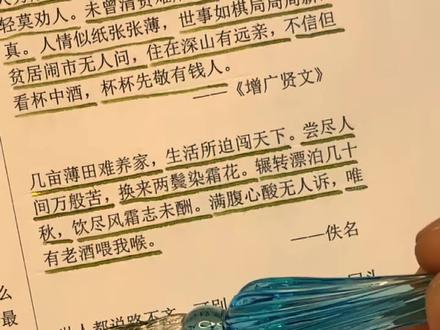 轻莫劝人。未曾清贫难
真。人情似纸张张薄，世事如棋局局新
贫居闹市无人问，住在深山有远亲，不信但
看杯中酒，杯杯先敬有钱人。
——《增广贤文》
几亩薄田难养家，生活所迫闯天下。尝尽人
间万般苦，换来两鬓染霜花。辗转漂泊几十
秋，饮尽风霜志未酬。满腹心酸无人诉，唯
有老酒喂我喉。
——佚名
么
最
都说路不齐